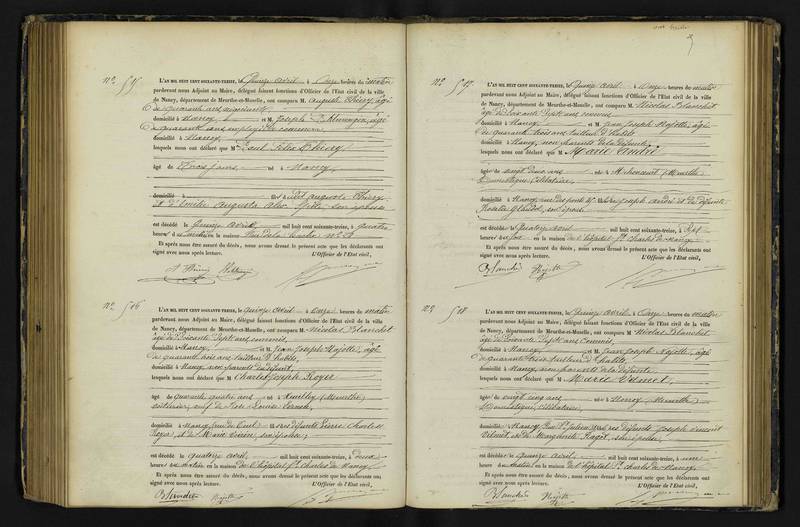 No 515
L'AN MIL HUIT CENT SOIXANTE-TREIZE, le Quinze avril à Onze heures du matin
pardevant nous Adjoint au Maire, délégué faisant fonctions d'Officier de l'Etat civil de la ville
de Nancy, département de Meurthe-et-Moselle, ont comparu M. Auguste Thiery, âgé
de quarante ans
domicilié à Nancy et M. Joseph âgé
de quarante ans employé de commerce
domicilié à Nancy
lesquels nous ont déclaré que M Paul Jules Thiery
âgé de trois jours né à Nancy
domicilié à fils dudit Auguste Thiery
et d'Emilie Augusta son épouse
est décédé le Quinze avril mil huit cent soixante-treize, à quatre
heures du matin en la maison
Et après nous être assuré du décès, nous avons dressé le présent acte que les déclarants ont
signé avec nous après lecture. L'Officier de l'Etat civil,
A Thiery
No 516
L'AN MIL HUIT CENT SOIXANTE-TREIZE, le quinze avril à Onze heures du matin
pardevant nous Adjoint au Maire, délégué faisant fonctions d'Officier de l'Etat civil de la ville
de Nancy, département de Meurthe-et-Moselle, ont comparu M. Nicolas Blanchet
âgé de soixante Sept ans commis,
domicilié à Nancy et M. Jean Joseph Najotte, âgé
de quarante trois ans tailleur d'habits,
domicilié à Nancy, non parents du défunt,
lesquels nous ont déclaré que M Charles Joseph Royer
âgé de quarante quatre ans né à (Meurthe)
veuf de Louise
domicilié à Nancy, rue de Toul fils des défunts Pierre Charles
Royer et de Marie son épouse,
est décédé le quatorze avril mil huit cent soixante-treize, à deux
heures du matin en la maison de l'hôpital St Charles de Nancy
Et après nous être assuré du décès, nous avons dressé le présent acte que les déclarants ont
signé avec nous après lecture. L'Officier de l'Etat civil,
Blanchet Najotte
No 517
L'AN MIL HUIT CENT SOIXANTE-TREIZE, le Quinze avril à Onze heures du matin
pardevant nous Adjoint au Maire, délégué faisant fonctions d'Officier de l'Etat civil de la ville
de Nancy, département de Meurthe-et-Moselle, ont comparu M. Nicolas Blanchet
âgé de soixante Sept ans commis
domicilié à Nancy et M. Jean Joseph Najotte, âgé
de quarante trois ans tailleur d'habits
domicilié à Nancy, non parents de la défunte,
lesquels nous ont déclaré que M Marie André
âgée de vingt deux ans née à (Meurthe)
domestique Célibataire,
domiciliée à Nancy, rue des ponts fille de Joseph André et de défunte
Rosalie son épouse
est décédée le Quatorze avril mil huit cent soixante-treize, à Sept
heures du soir en la maison de l'hôpital St Charles de Nancy
Et après nous être assuré du décès, nous avons dressé le présent acte que les déclarants ont
signé avec nous après lecture. L'Officier de l'Etat civil,
Blanchet Najotte
No 518
L'AN MIL HUIT CENT SOIXANTE-TREIZE, le Quinze avril à Onze heures du matin
pardevant nous Adjoint au Maire, délégué faisant fonctions d'Officier de l'Etat civil de la ville
de Nancy, département de Meurthe-et-Moselle, ont comparu M. Nicolas Blanchet
âgé de soixante Sept ans commis,
domicilié à Nancy et M. Jean Joseph Najotte, âgé
de quarante trois tailleur d'habits,
domicilié à Nancy non parents de la défunte
lesquels nous ont déclaré que M Marie
âgée de vingt cinq ans née à Meurthe
domestique, célibataire,
domiciliée à Nancy rue St Julien fille des défunts Joseph Vincent
et de Marguerite son épouse,
est décédée le quinze avril mil huit cent soixante-treize, à une
heure du matin en la maison de l'hôpital St Charles de Nancy
Et après nous être assuré du décès, nous avons dressé le présent acte que les déclarants ont
signé avec nous après lecture. L'Officier de l'Etat civil,
Blanchet Najotte